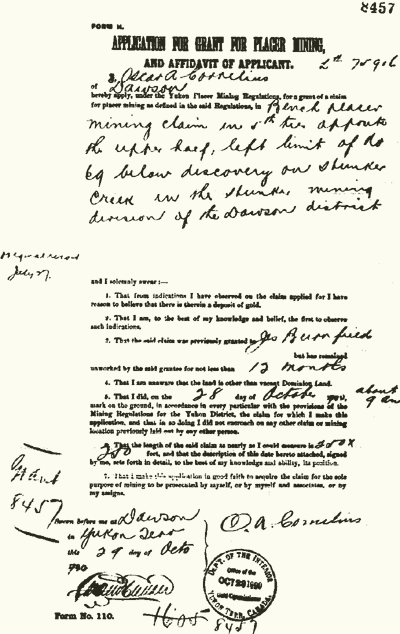 8457
FORM H.
APPLICATION FOR GRANT FOR PLACER MINING,
AND AFFIDAVIT OF APPLICANT.
I, Oscar A Cornelius
of Dawson
hereby apply, under the Yukon Placer Mining Regulations, for a grant of a claim
for placer mining as defined in the said Regulations, in Bench placer
mining claim in 5th tier opposite
the upper half, left limit of No
below discovery on
Creek in the mining
division of the Dawson district
July 27.
and I solemnly swear:—
1. That from indications I have observed on the claim applied for I have
reason to believe that there is therein a deposit of gold.
2. That I am, to the best of my knowledge and belief, the first to observe
such indications.
3. That the said claim was previously granted to Jas
but has remained
unworked by the said grantee for not less than 12 months
4. That I am unaware that the land is other than vacant Dominion Land.
5. That I did, on the 28 day of October about
mark on the ground, in accordance in every particular with the provisions of the 9 am
Mining Regulations for the Yukon District, the claim for which I make this
application, and that in so doing I did not encroach on any other claim or mining
location previously laid out by any other person.
6. That the length of the said claim as nearly as I could measure is
250 feet, and that the description of this date hereto attached, signed
by me, sets forth in detail, to the best of my knowledge and ability, its position.
7. That I make this application in good faith to acquire the claim for the sole
purpose of mining to be prosecuted by myself, or by myself and associates, or by
my assigns.
Grant
8457
Sworn before me at Dawson
in Yukon Terr
this 29 day of Octo
O. A. Cornelius
DEPT. OF THE INTERIOR
Office of the
OCT 29 1900
Gold Commissioner
YUKON TERR. CANADA.
Form No. 110.
8457